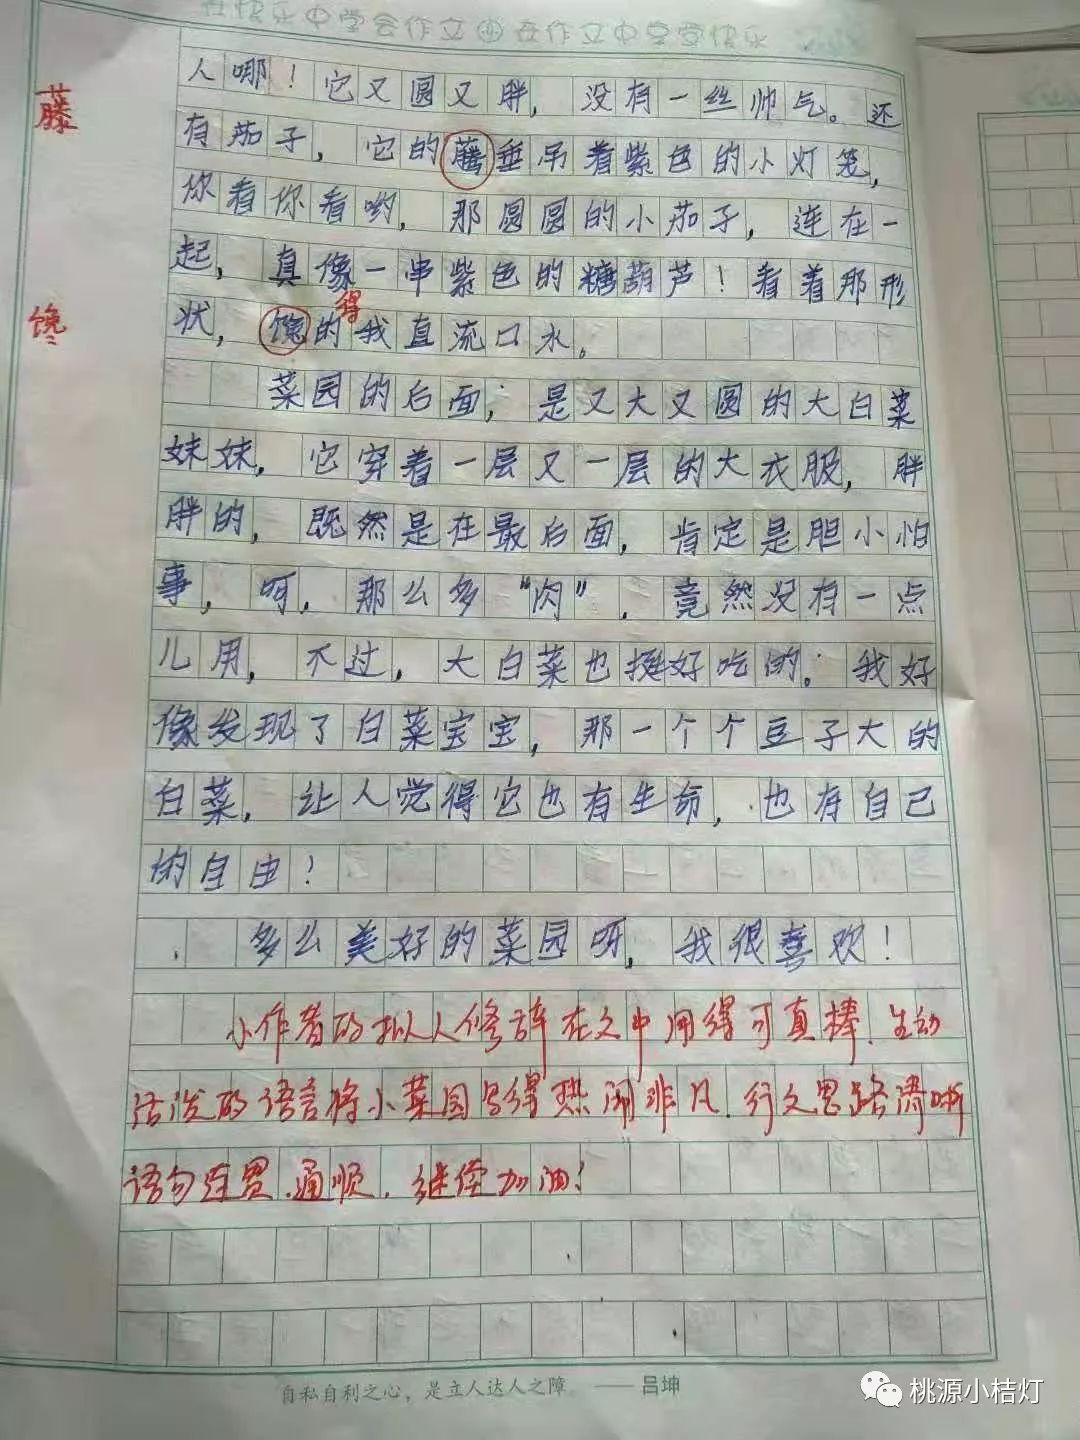 在快乐中学会作文 在作文中享受快乐
人哪！它又圆又胖，没有一丝帅气。还
藤
有茄子，它的藤垂吊着紫色的小灯笼，
你看你看哟，那圆圆的小茄子，连在一
起，真像一串紫色的糖葫芦！看着那形
馋
得
状，馋的我直流口水。
菜园的后面；是又大又圆的大白菜
妹妹，它穿着一层又一层的大衣服，胖
胖的，既然是在最后面，肯定是胆小怕
事，呵，那么多“肉”，竟然没有一点
儿用，不过，大白菜也挺好吃的。我好
像发现了白菜宝宝，那一个个豆子大的
白菜，让人觉得它也有生命，也有自己
的自由！
多么美好的菜园呀，我很喜欢！
小作者的拟人修辞在文中用得可真棒，生动
活泼的语言将小菜园写得热闹非凡，行文思路清晰
语句连贯、通顺，继续加油！
自私自利之心，是立人达人之障。——吕坤
桃源小桔灯